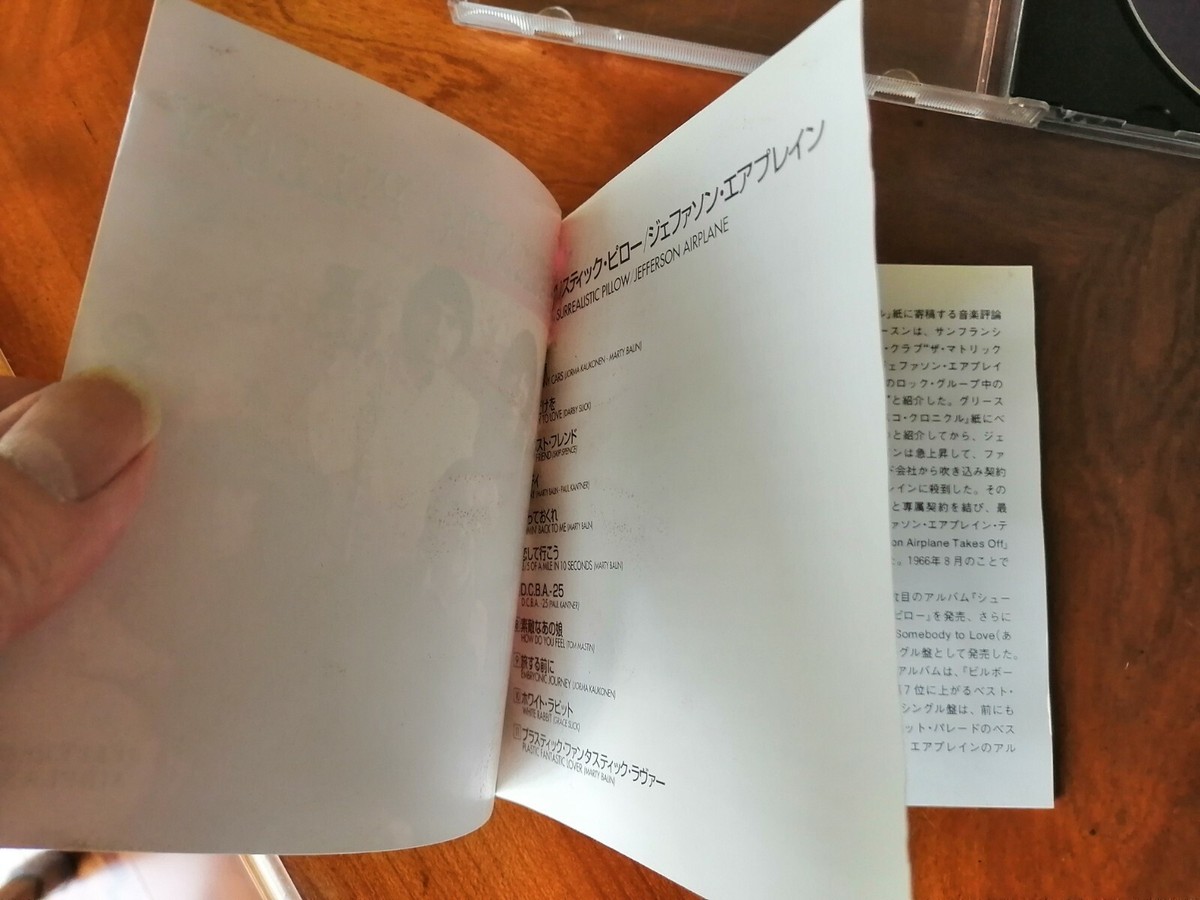 リスティック・ピロー/ジェファソン・エアプレイン
SURREALISTIC PILLOW/JEFFERSON AIRPLANE
MY CARS (JORMA KAUKONEN - MARTY BALIN)
けを
TO LOVE (DARBY SLICK)
スト・フレンド
FRIEND (SKIP SPENCE)
イ
(MARTY BALIN - PAUL KANTNER)
っておくれ
BACK TO ME (MARTY BALIN
して行こう
3/5 OF A MILE IN 10 SECONDS (MARTY BALIN)
D.C.B.A.-25
D.C.B.A. - 25 (PAUL KANTNER)
素敵なあの娘
HOW DO YOU FEEL (TOM MASTIN)
旅する前に
EMBRYONIC JOURNEY (JORMA KAUKONEN)
ホワイト・ラビット
WHITE RABBIT (GRACE SLICK)
プラスティック・ファンタスティック・ラヴァー
PLASTIC FANTASTIC LOVER (MARTY BALIN)
ル」紙に寄稿する音楽評論
ースンは、サンフランシ
・クラブ"ザ・マトリック
ェファソン・エアプレイ
のロック・グループ中の
"と紹介した。グリース
スコ・クロニクル」紙にべ
と紹介してから、ジェ
ンは急上昇して、ファ
ド会社から吹き込み契約
レインに殺到した。その
と専属契約を結び、最
ァソン・エアプレイン・テ
on Airplane Takes Off」
。1966年8月のことで
枚目のアルバム『シュー
ピロー』を発売、さらに
Somebody to Love(あ
グル盤として発売した。
アルバムは、「ビルボー
7位に上がるベスト・
シングル盤は、前にも
ット・パレードのベス
エアプレインのアル